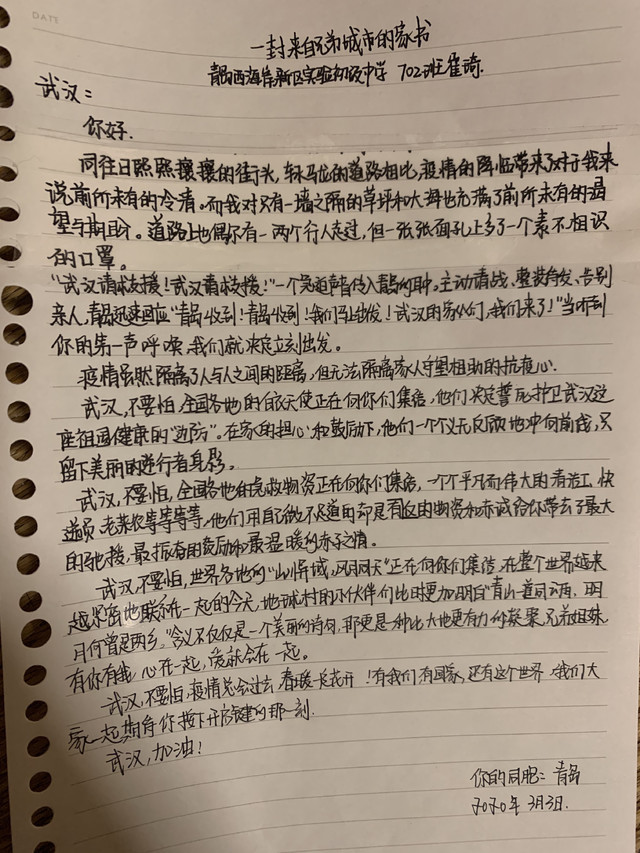 DATE
一封来自兄弟城市的家书
青岛西海岸新区实验初级中学 702班崔琦
武汉：
你好.
同往日熙熙攘攘的街头，车水马龙的道路相比，疫情的降临带来了对于我来
说前所未有的冷清。而我对只有一墙之隔的草坪和大海也充满了前所未有的渴
望与期盼。道路上也偶尔有一两个行人走过，但一张张面孔上多了一个素不相识
的口罩。
"武汉请求支援！武汉请求支援！"一个声音传入青岛的耳中。主动请战、整装待发、告别
亲人，青岛迅速回应"青岛收到！青岛收到！我们马上出发！武汉的家人们，我们来了！"当听到
你的第一声呼唤，我们就决定立刻出发。
疫情虽然隔离了人与人之间的距离，但无法隔离家人守望相助的抗疫心.
武汉，不要怕，全国各地的白衣天使正在向你们集结，他们决定誓死护卫武汉这
座祖国健康的"边防"。在家的担心和鼓励下，他们一个个义无反顾地冲向前线，只
留下美丽的逆行者身影。
武汉，不要怕，全国各地的救物资正在向你们集结，一个个平凡而伟大的清洁工，快
递员，老菜农等等等等，他们用自己做不足道的却是有的物资和赤诚给你带去了最大
的驰援，最振奋的鼓励和最温暖的赤子之情。
武汉，不要怕，世界各地的"山川异域，风月同天"正在向你们集结，在整个世界越来
越紧密地联系在一起的今天，地球村的小伙伴们比时更加明白"青山一道同云雨，明
月何曾是两乡。"含义不仅仅是一个美丽的诗句，那更是一种比大地更有力的凝聚，兄弟姐妹，
有你有我，心在一起，爱就会在一起。
武汉，不要怕，疫情总会过去，春暖花开！有我们，有国家，还有这个世界，我们大
家一起期待你按下开启键的那一刻.
武汉，加油！
你的同胞：青岛
2020年3月3日.